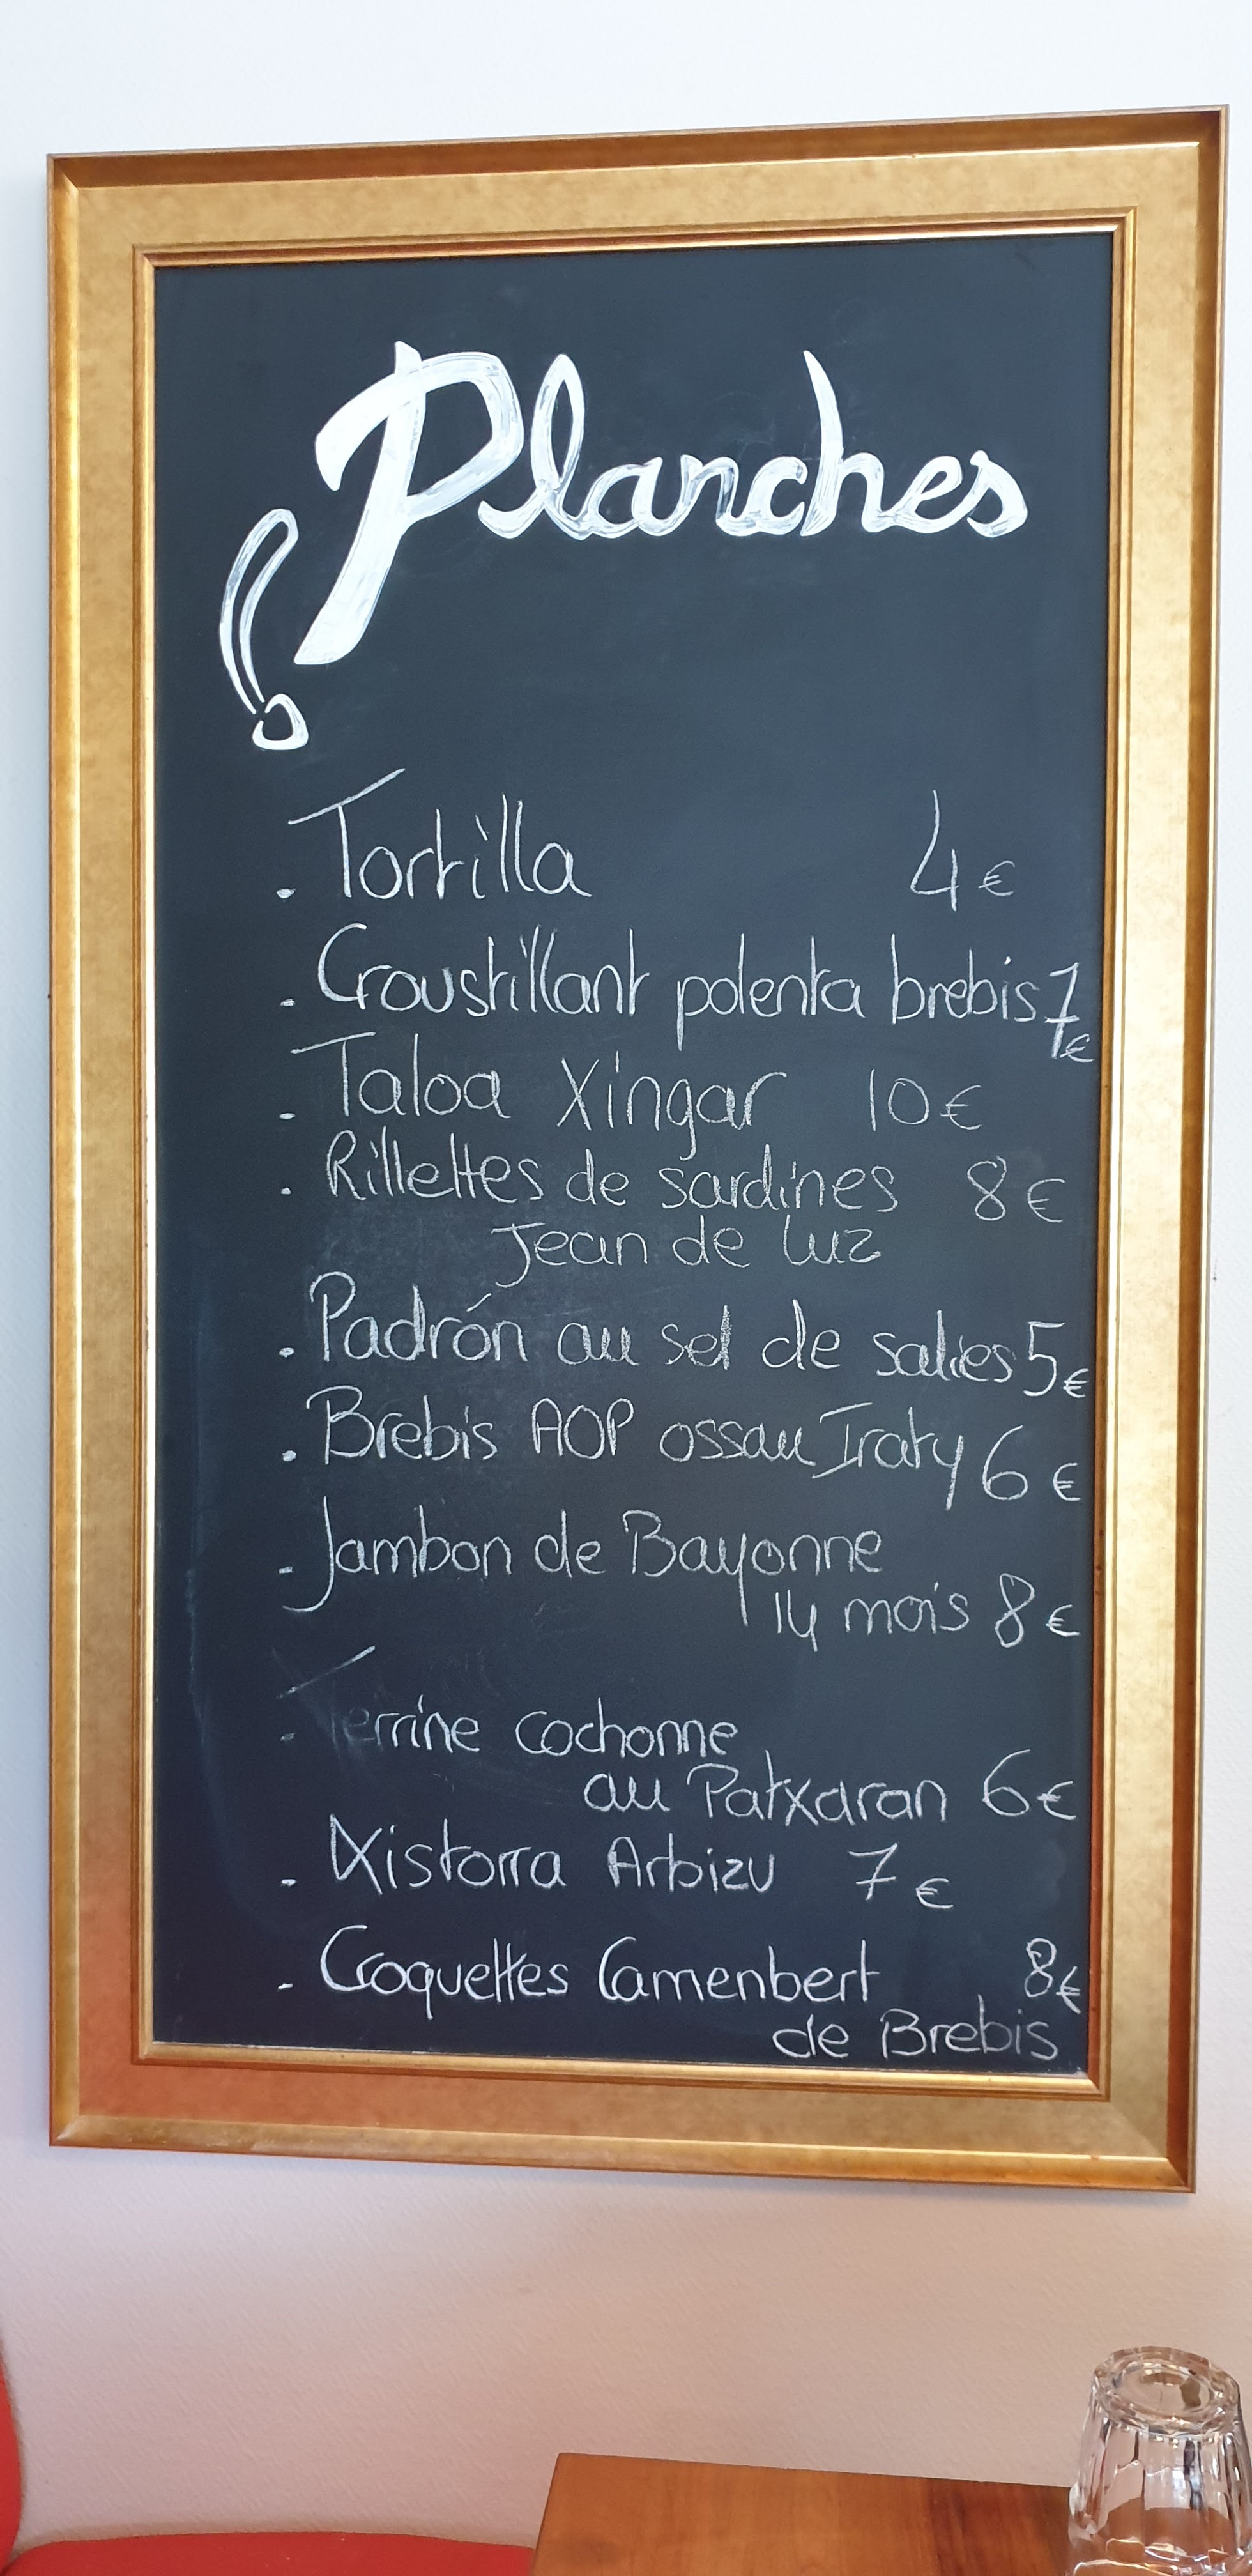 Planches
. Tortilla 4€
. Croustillant polenta brebis 7€
. Taloa Xingar 10€
. Rillettes de sardines 8€
Jean de Luz
. Padrón au sel de salies 5€
. Brebis AOP ossau Iraty 6€
- Jambon de Bayonne
14 mois 8€
- Terrine cochonne
au Patxaran 6€
. Xistorra Arbizu 7€
. Croquettes Camenbert 8€
de Brebis